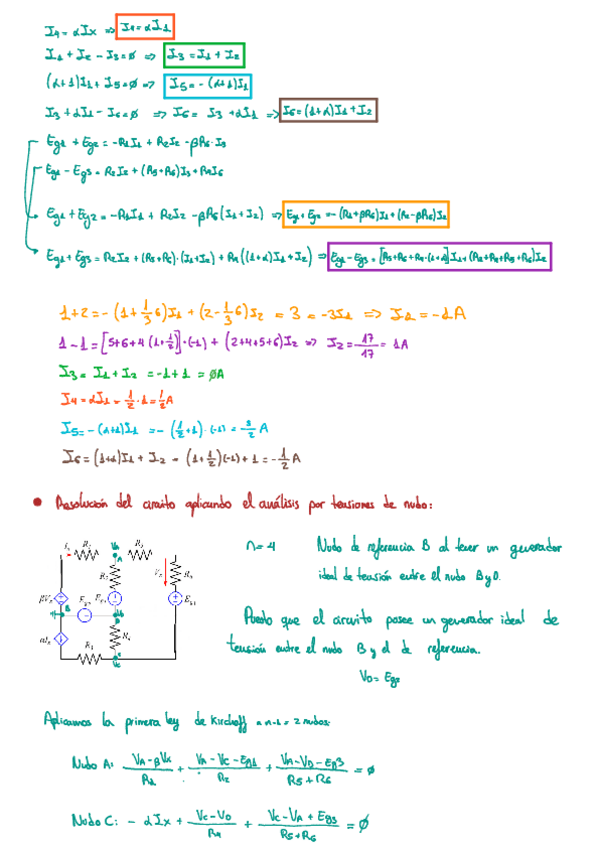 I4 = αIx => I4 = αI1
I1 + I2 - I3 = ø => I3 = I1 + I2
(α+1)I1 + I5 = ø => I5 = -(α+1)I1
I3 + αI1 - I6 = ø => I6 = I3 + αI1 => I6 = (1+α)I1 + I2
Eg1 + Eg2 = -R1I1 + R2I2 - βR6·I3
Eg1 - Eg3 = R2I2 + (R5+R6)I3 + R4I6
Eg1 + Eg2 = -R1I1 + R2I2 - βR6(I1+I2) => Eg1 + Eg2 = -(R1+βR6)I1 + (R2-βR6)I2
Eg1 + Eg3 = R2I2 + (R5+R6)·(I1+I2) + R4((1+α)I1+I2) => Eg1 - Eg3 = [R5+R6+R4·(1+α)]I1 + (R2+R4+R5+R6)I2
1+2 = -(1+1/3 6)I1 + (2-1/3 6)I2 = 3 = -3I1 => I1 = -1A
1-1 = [5+6+4(1+1/2)]·(-1) + (2+4+5+6)I2 => I2 = 17/17 = 1A
I3 = I1 + I2 = -1+1 = øA
I4 = αI1 = 1/2·1 = 1/2 A
I5 = -(α+1)I1 = -(1/2+1)·(-1) = 3/2 A
I6 = (1+α)I1 + I2 = (1+1/2)(-1)+1 = -1/2 A
• Resolución del circuito aplicando el análisis por tensiones de nudo:
n=4 Nudo de referencia B al tener un generador
ideal de tensión entre el nudo B y D.
Puesto que el circuito posee un generador ideal de
tensión entre el nudo B y el de referencia.
VD = Eg2
Aplicamos la primera ley de Kirchoff a n-1 = 2 nudos:
Nudo A: (VA-βVx)/R1 + (VA-VC-Eg1)/R2 + (VA-VD-Eg3)/(R5+R6) = ø
Nudo C: -αIx + (VC-VD)/R4 + (VC-VA+Eg3)/(R5+R6) = ø